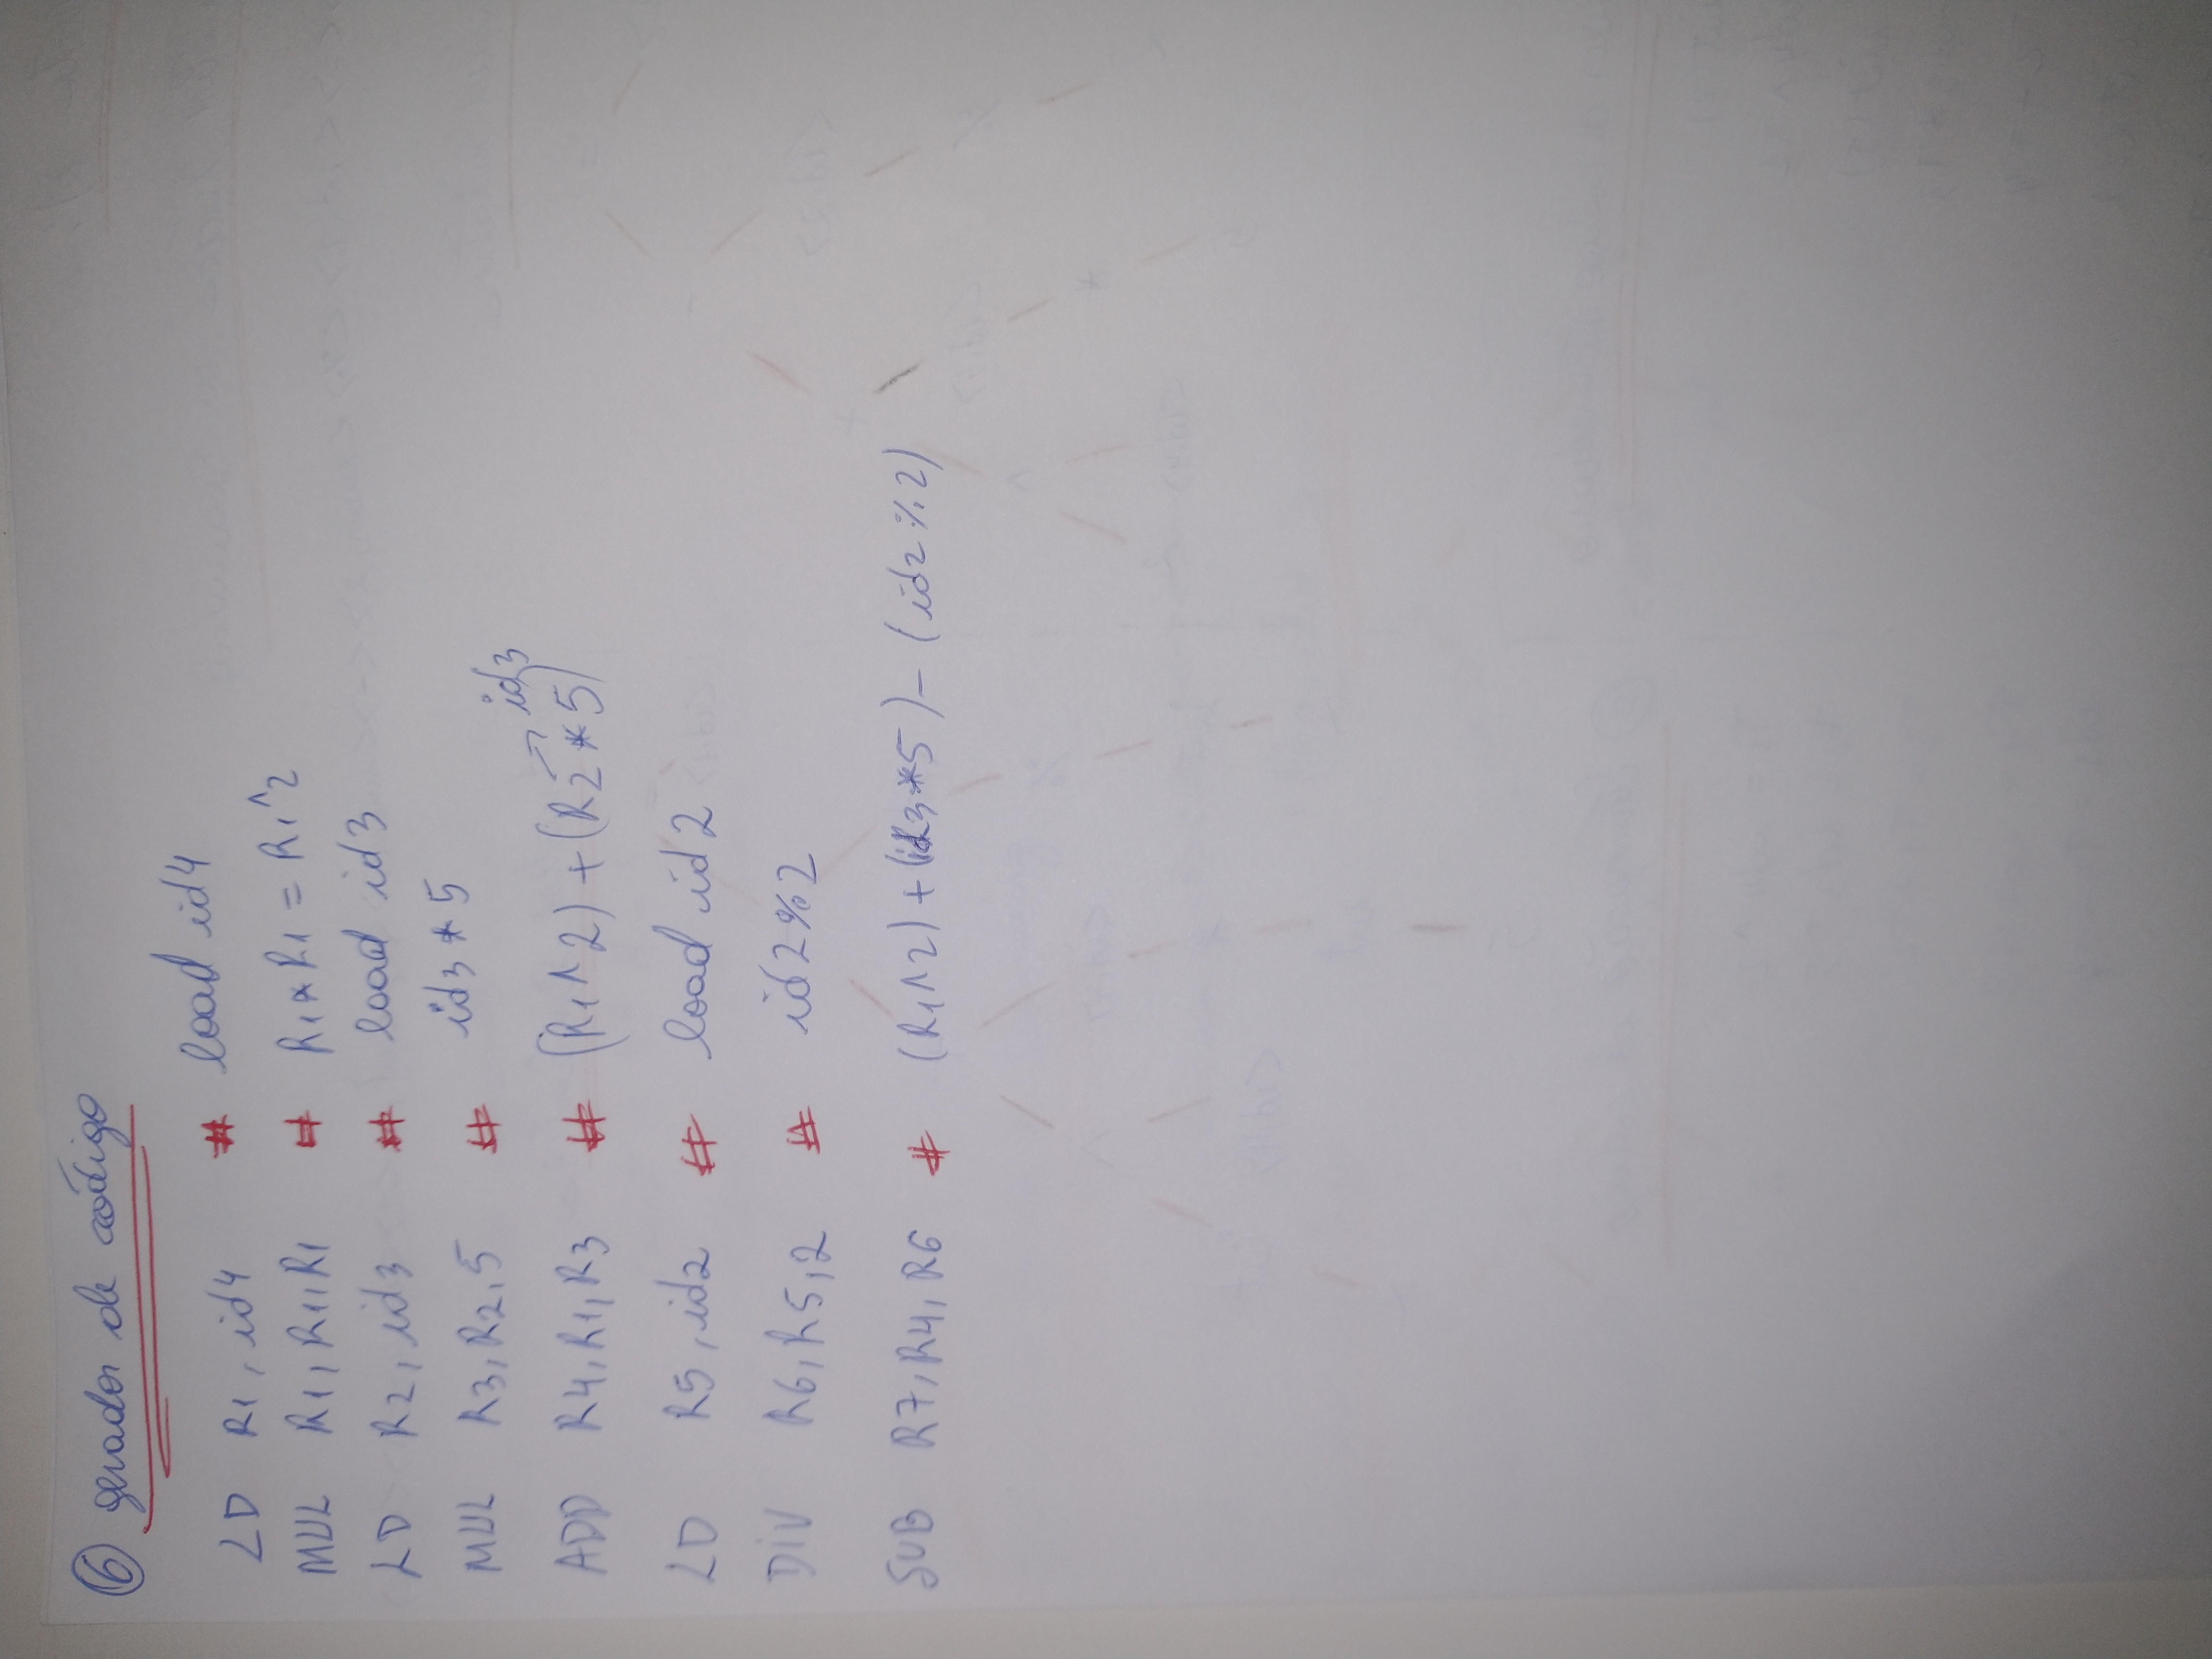 6 gerador de código
LD R1, id4 # load id4
MUL R1, R1, R1 # R1 * R1 = R1^2
LD R2, id3 # load id3
MUL R3, R2, 5 # id3 * 5
id3
ADD R4, R1, R3 # (R1^2) + (R2 * 5)
LD R5, id2 # load id2
DIV R6, R5, 2 # id2 % 2
SUB R7, R4, R6 # (R1^2) + (id3 * 5) - (id2 % 2)